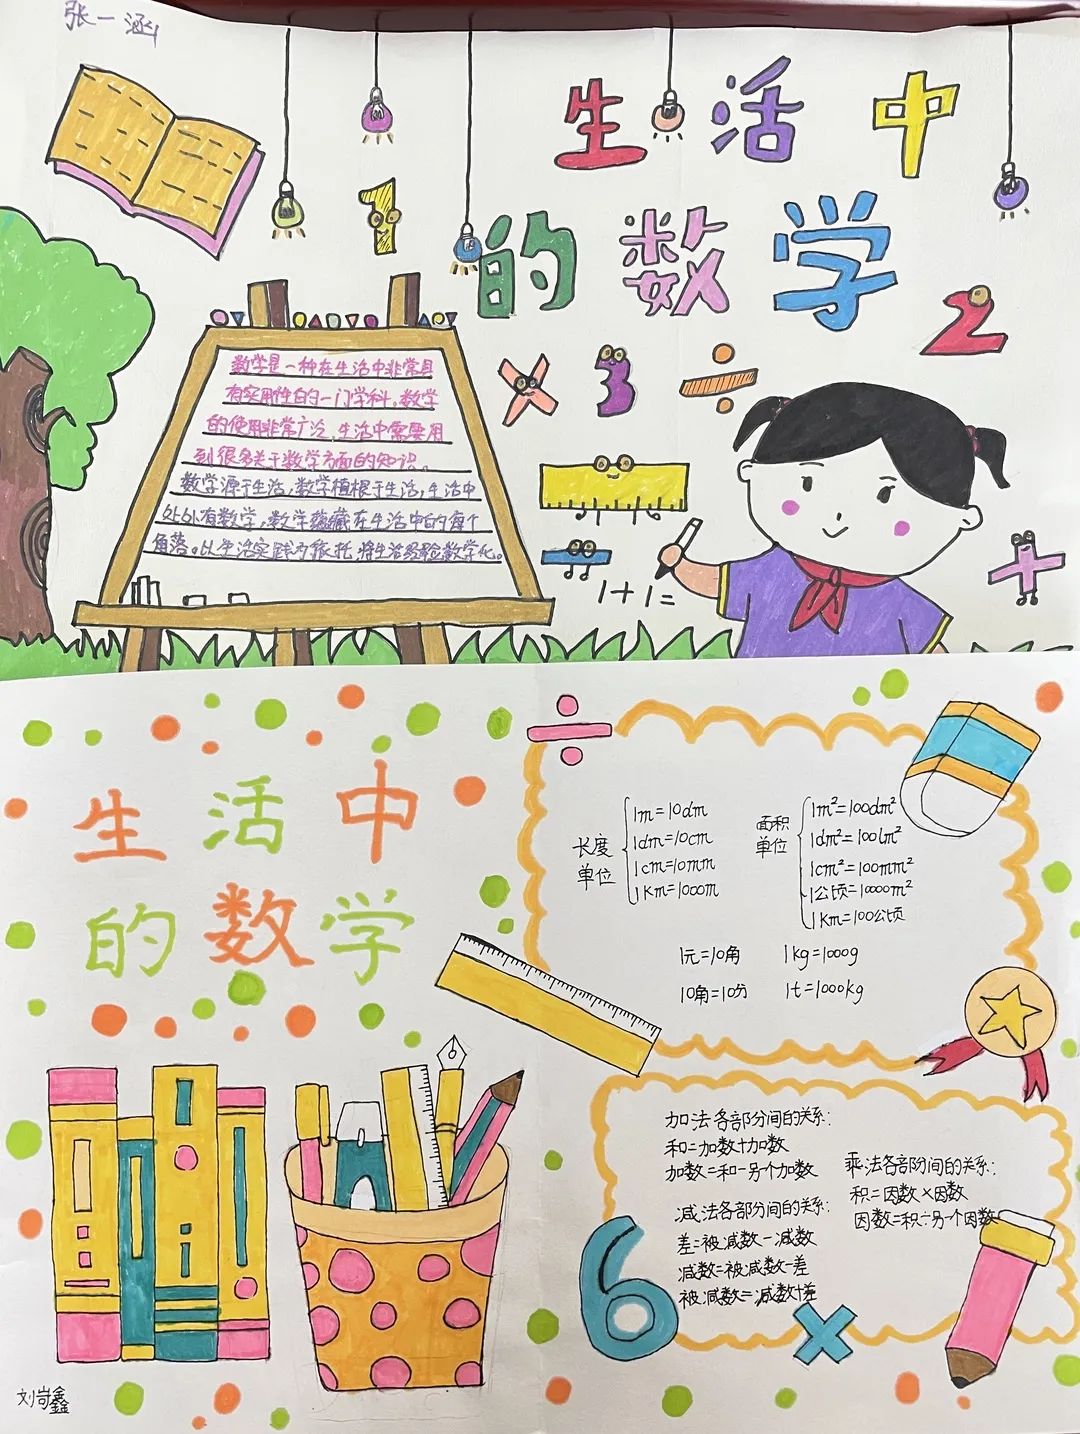 张一涵
生活中
的数学
1
2
× 3 ÷
数学是一种在生活中非常具
有实用性的一门学科。数学
的使用非常广泛,生活中需要用
到很多关于数学方面的知识。
数学源于生活,数学植根于生活,生活中
处处有数学,数学蕴藏在生活中的每个
角落。以生活实践为依托,将生活经验数学化。
1+1=
+
生活中
的数学
÷
长度
单位
1m=10dm
1dm=10cm
1cm=10mm
1Km=1000m
面积
单位
1m²=100dm²
1dm²=100cm²
1cm²=100mm²
1公顷=10000m²
1Km=100公顷
1元=10角
1kg=1000g
10角=10分
1t=1000kg
加法各部分间的关系:
和=加数+加数
加数=和-另个加数
减法各部分间的关系:
差=被减数-减数
减数=被减数-差
被减数=减数+差
乘法各部分间的关系:
积=因数×因数
因数=积÷另一个因数
6
×